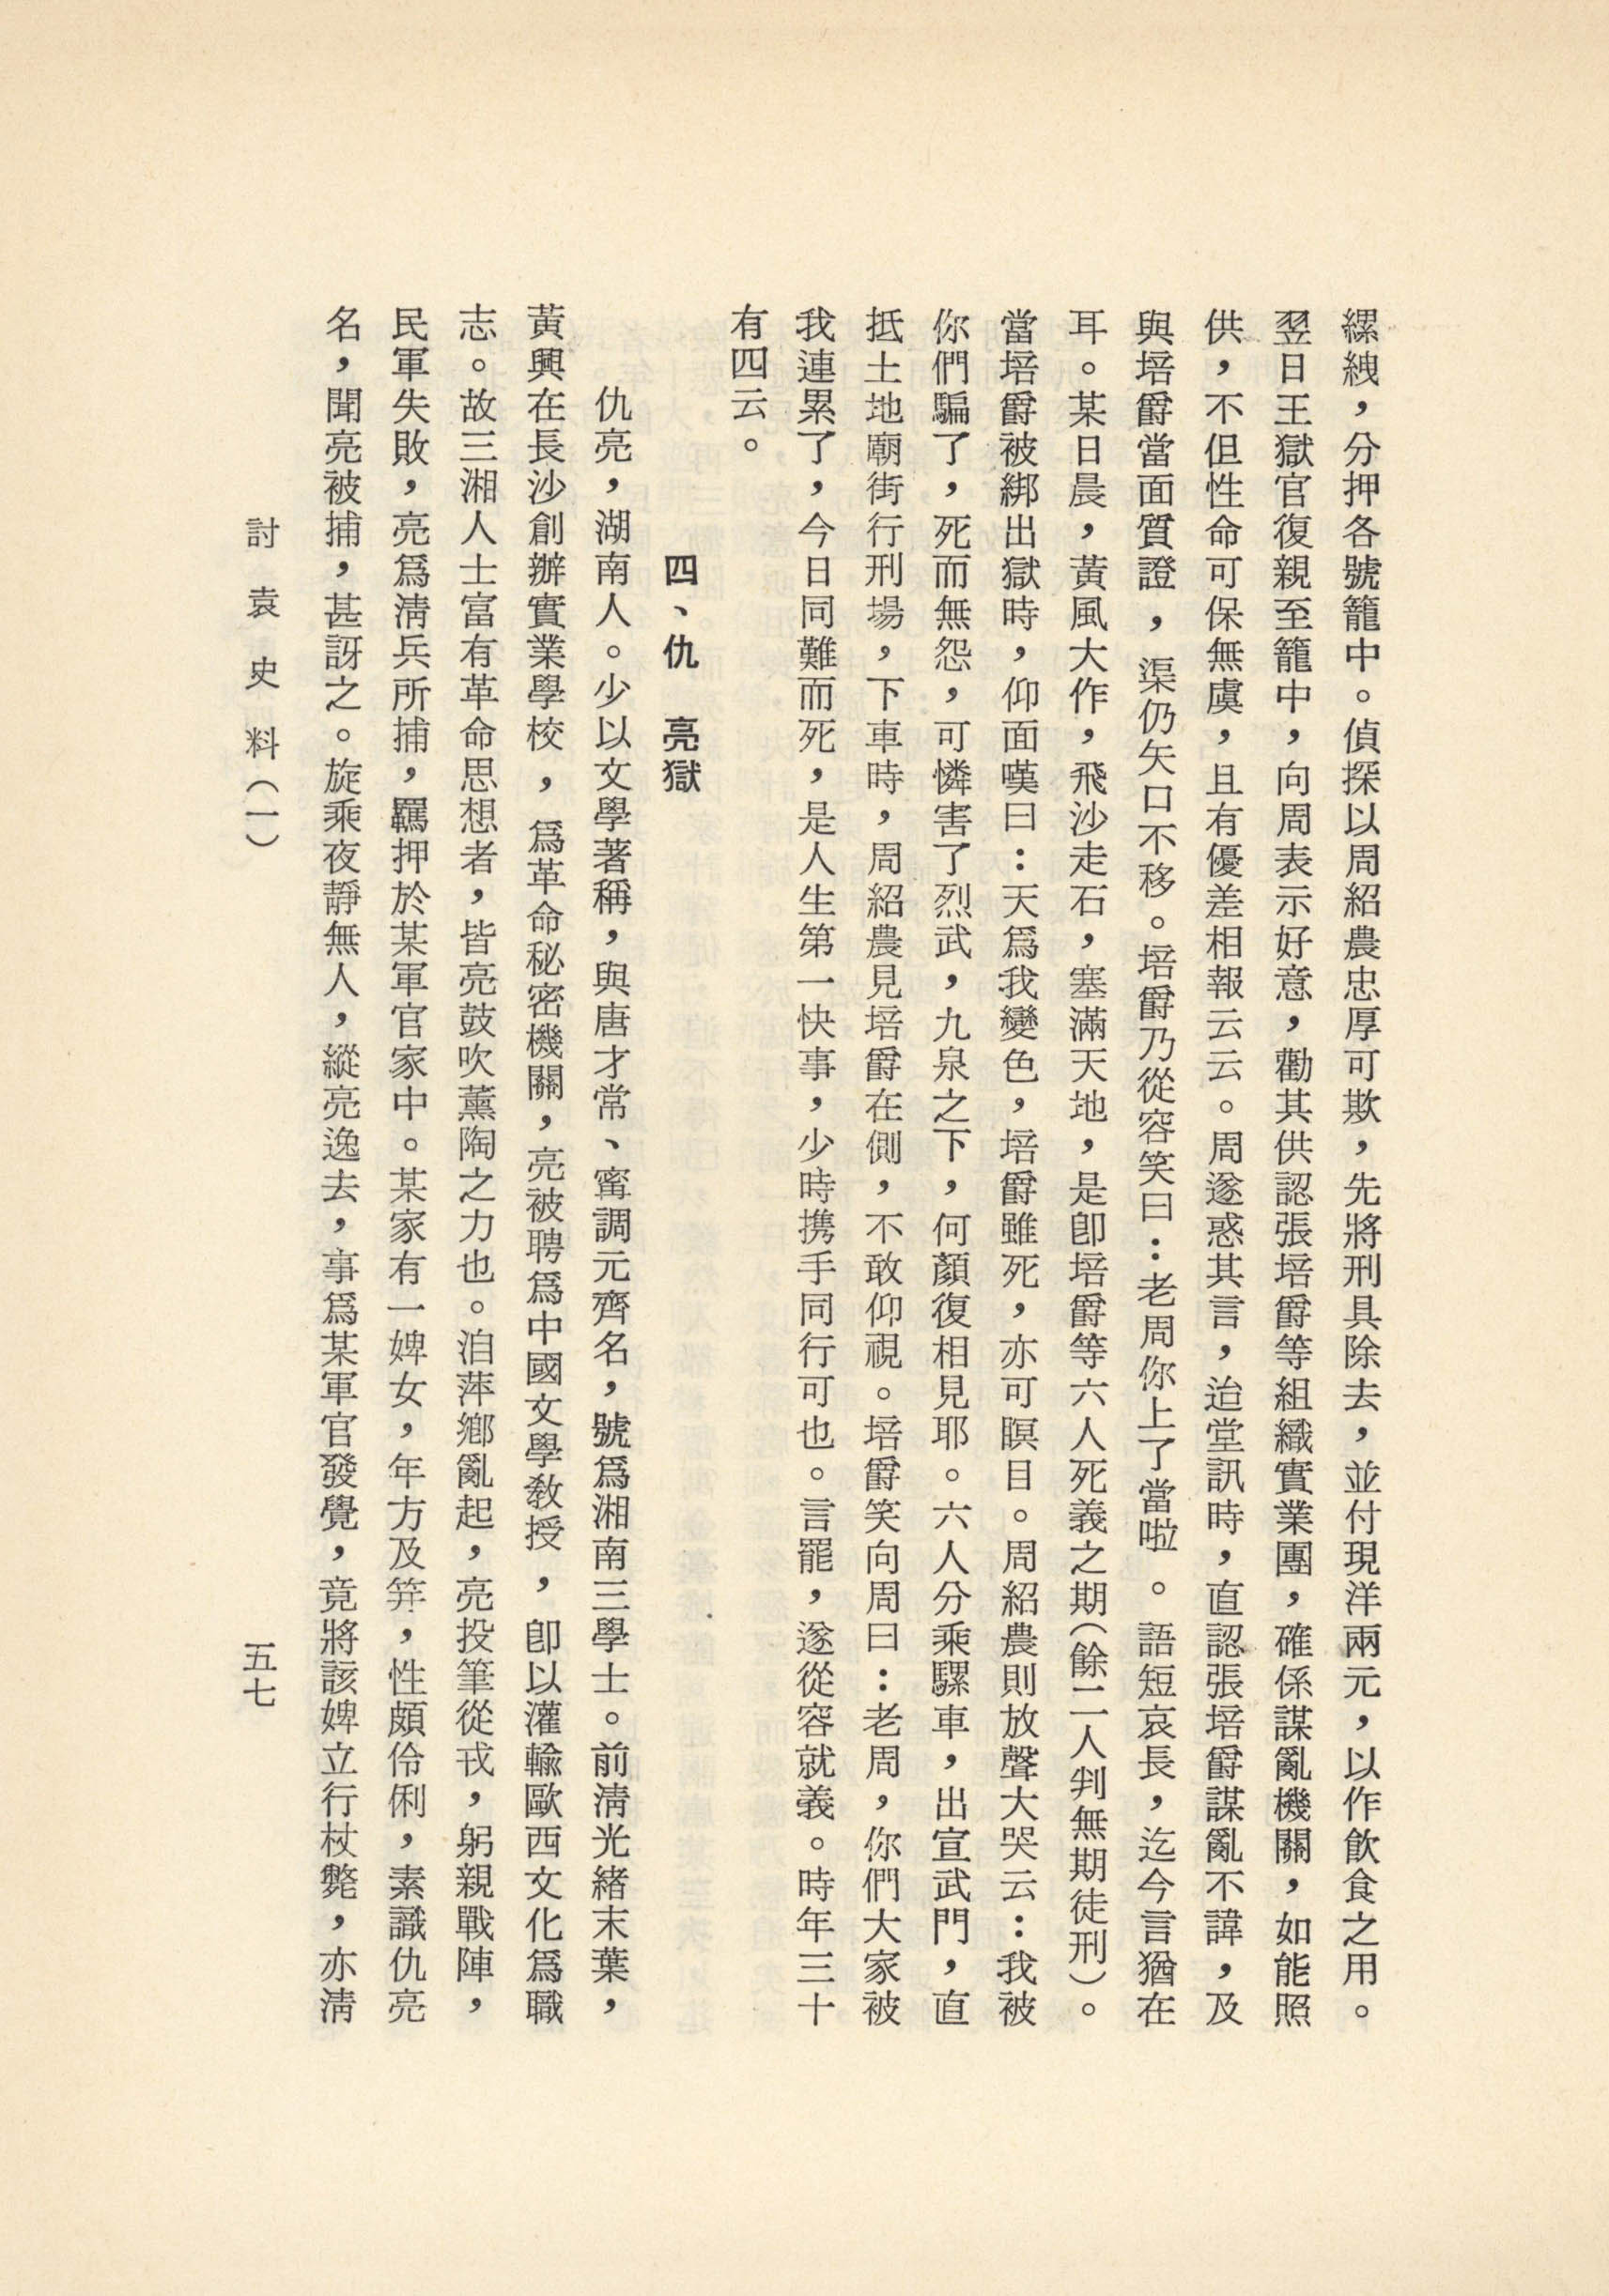 縲絏，分押各號籠中。偵探以周紹農忠厚可欺，先將刑具除去，並付現洋兩元，以作飲食之用。
翌日王獄官復親至籠中，向周表示好意，勸其供認張培爵等組織實業團，確係謀亂機關，如能照
供，不但性命可保無虞，且有優差相報云云。周遂惑其言，迨堂訊時，直認張培爵謀亂不諱，及
與培爵當面質證，渠仍矢口不移。培爵乃從容笑曰：老周你上了當啦。語短哀長，迄今言猶在
耳。某日晨，黃風大作，飛沙走石，塞滿天地，是卽培爵等六人死義之期（餘二人判無期徒刑）。
當培爵被綁出獄時，仰面嘆曰：天爲我變色，培爵雖死，亦可瞑目。周紹農則放聲大哭云：我被
你們騙了，死而無怨，可憐害了烈武，九泉之下，何顏復相見耶。六人分乘騾車，出宣武門，直
抵土地廟街行刑場，下車時，周紹農見培爵在側，不敢仰視。培爵笑向周曰：老周，你們大家被
我連累了，今日同難而死，是人生第一快事，少時携手同行可也。言罷，遂從容就義。時年三十
有四云。
四、仇　亮獄
仇亮，湖南人。少以文學著稱，與唐才常、甯調元齊名，號爲湘南三學士。前淸光緒末葉，
黃興在長沙創辦實業學校，爲革命秘密機關，亮被聘爲中國文學敎授，卽以灌輸歐西文化爲職
志。故三湘人士富有革命思想者，皆亮鼓吹薰陶之力也。洎萍鄉亂起，亮投筆從戎，躬親戰陣，
民軍失敗，亮爲淸兵所捕，羈押於某軍官家中。某家有一婢女，年方及笄，性頗伶俐，素識仇亮
名，聞亮被捕，甚訝之。旋乘夜靜無人，縱亮逸去，事爲某軍官發覺，竟將該婢立行杖斃，亦淸
討袁史料（一）
五七